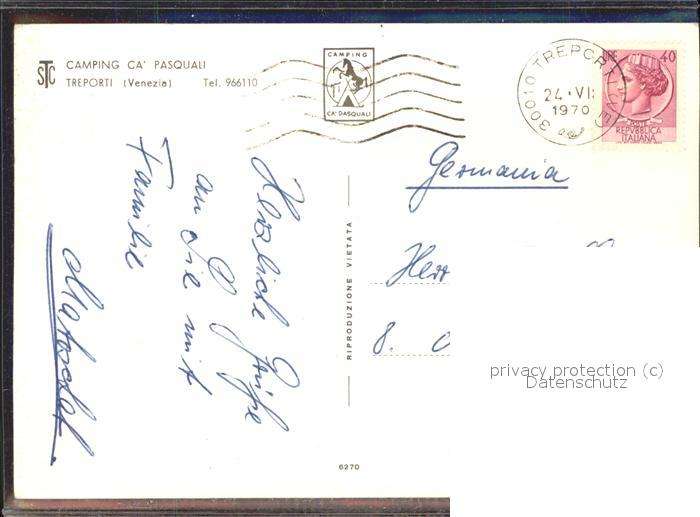 STC
CAMPING CA' PASQUALI
TREPORTI (Venezia) Tel. 966110
CAMPING
CA' PASQUALI
30010 TREPORTI
24·VI
1970
40
POSTE
REPVBBLICA
ITALIANA
Herzliche Grüße
an Sie mit
Familie
Germania
Herr
8.
RIPRODUZIONE VIETATA
6270
privacy protection (c)
Datenschutz